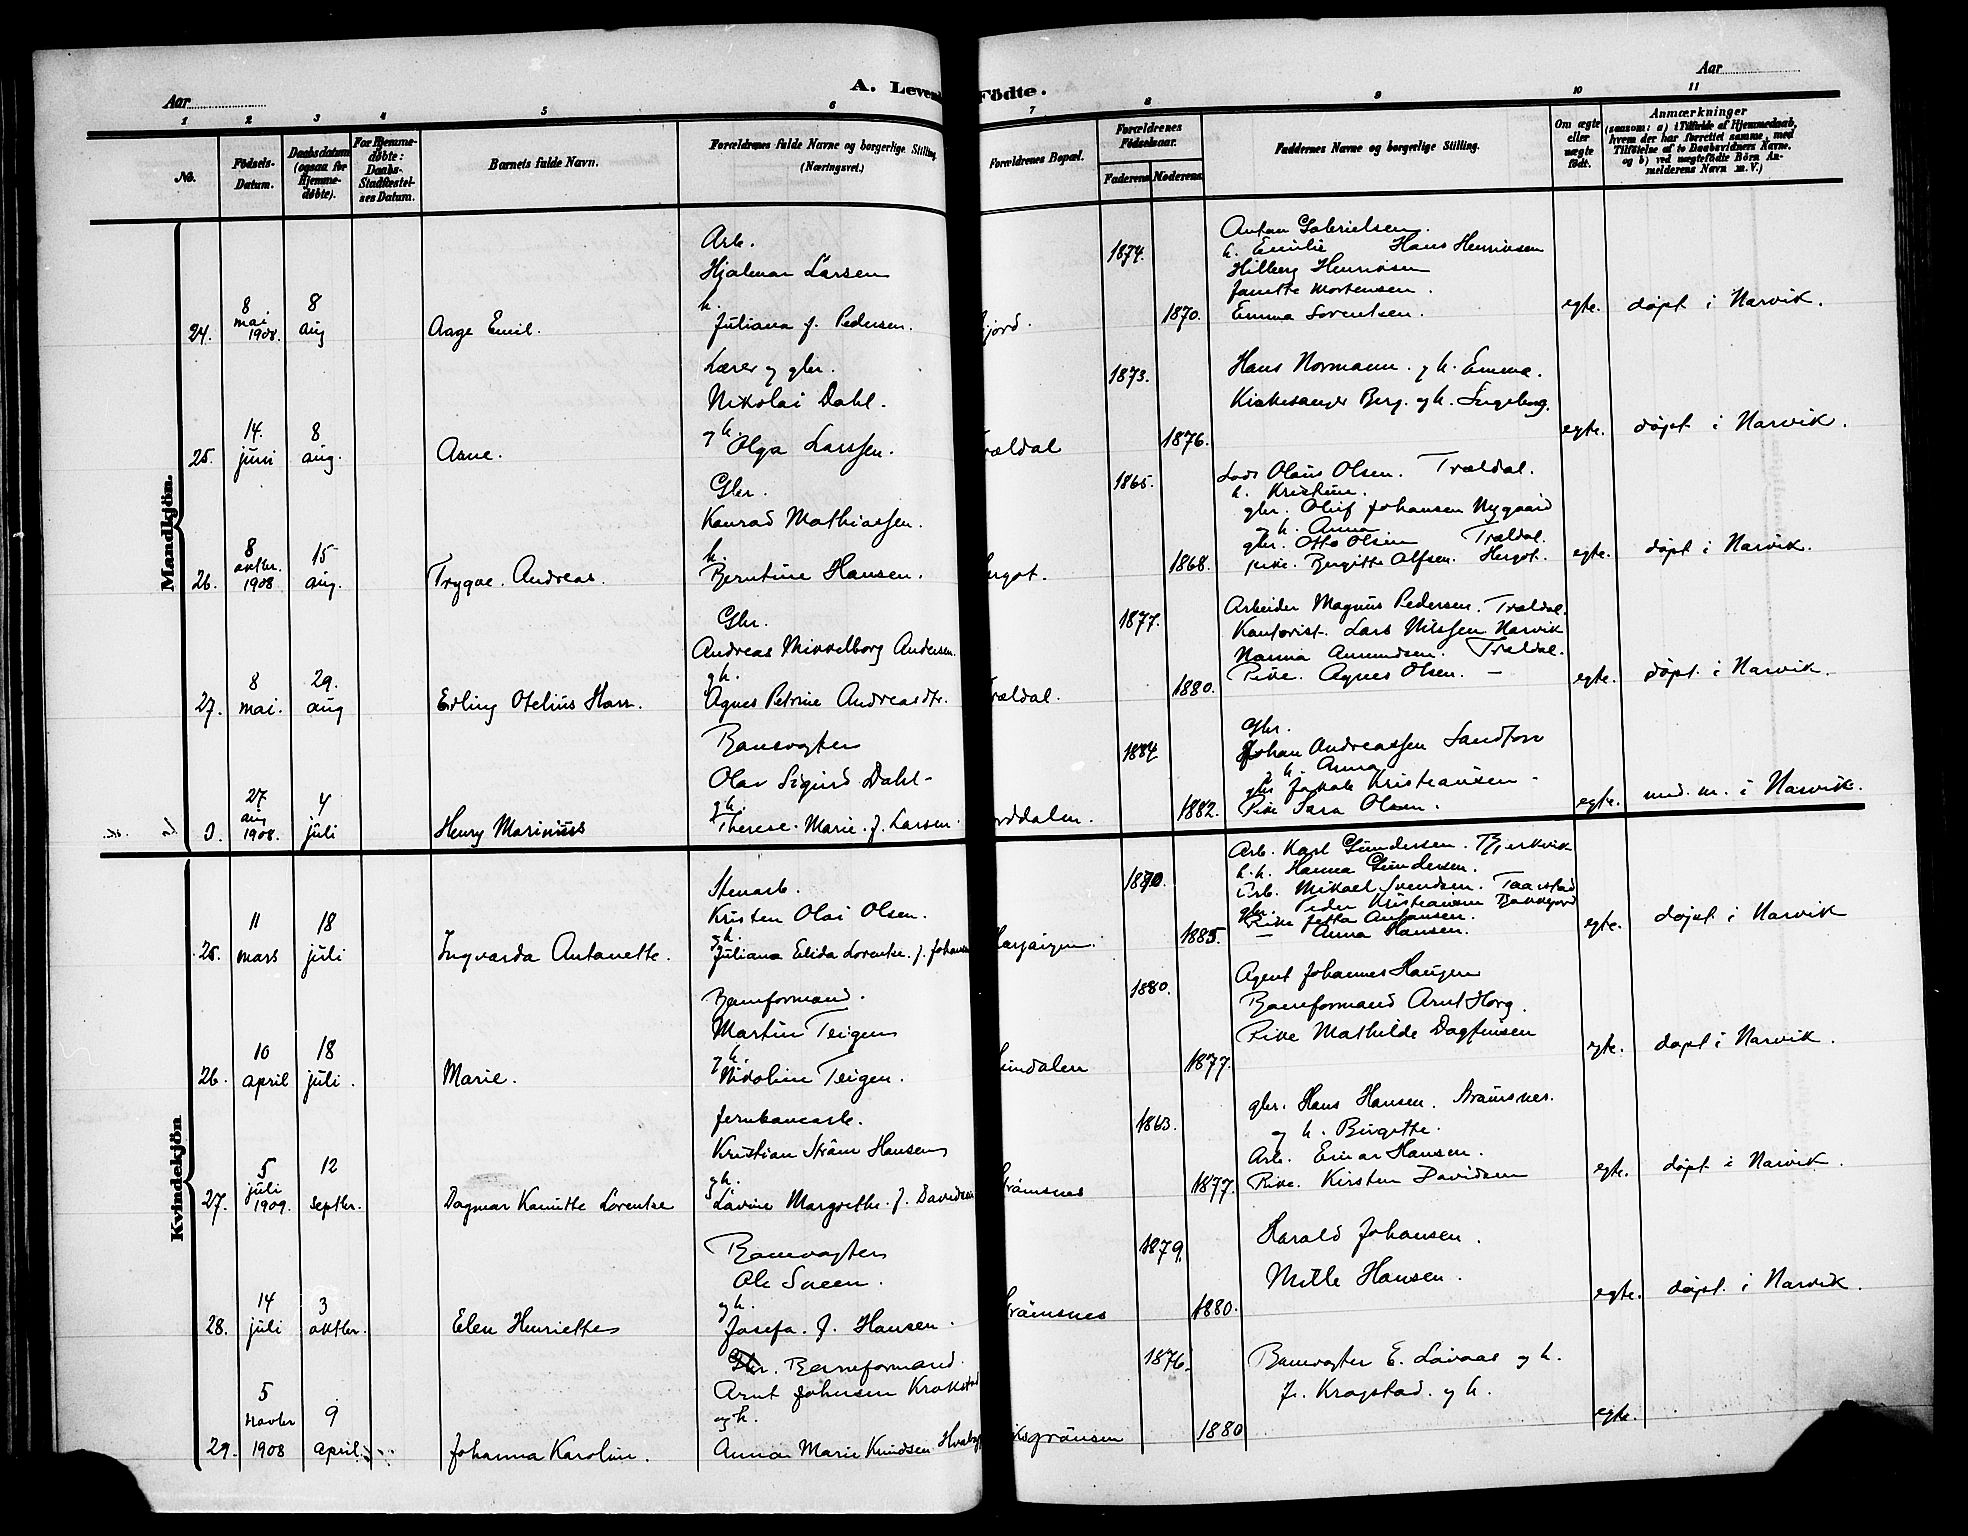 Aar
A. Levende Födte.
Aar
1 2 3 4 5 6 7 8 9 10 11
No.
Födsels-Datum.
Daabsdatum (ogsaa for Hjemmedøbte).
For Hjemmedøbte: Daabs-Stadfæstelses Datum.
Barnets fulde Navn.
Forældrenes fulde Navne og borgerlige Stilling. (Næringsvei.)
Forældrenes Bopæl.
Forældrenes Födselsaar.
Faderens Moderens
Faddernes Navne og borgerlige Stilling.
Om ægte eller uægte født.
Anmærkninger
(saasom: a) i Tilfælde af Hjemmedaab, hvem der har forrettet samme, med Tilföielse af to Daabsvidners Navne, og b) ved uægtefödte Börn Anmelderens Navn m. V.)
Mandkjön.
24. 8 mai 1908. 8 aug Aage Emil.
Arb.
Hjalmar Larsen
h.
Juliana f. Pedersen.
fjord.
1874. 1870.
Anton Gabrielsen.
h. Emilie Hans Henriksen
Hilberg Henriksen
Janette Mortensen.
Emma Sorentsen.
egte. døpt i Narvik.
25. 14. juni 8 aug. Arne.
Lærer og gbr.
Nikolai Dahl.
g h. Olga Larssen.
Træeldal
1873. 1876.
Hans Normann. og h. Emma.
Kirkesanger Berg. og h. Ingeborg.
egte. døpt i Narvik.
26. 8 oktbr. 1908 15 aug. Trygve. Andreas.
Gbr.
Konrad Mathiassen.
h.
Berntine Hansen.
Hergot.
1865. 1868.
Lods Olaus Olsen. Træeldal.
h. Kristine.
gbr. Oluf Johansen Nygaard
og h. Anna
gbr. Otto Olsen Træeldal.
pike. Birgitte Olsen. Hergot.
egte. døpt i Narvik.
27. 8 mai. 29. aug Erling Otelius Harr.
Gbr.
Andreas Mikkelborg Andersen.
g h.
Agnes Petrine Andreasdtr.
Træeldal.
1877. 1880.
Arbeider Magnus Pedersen. Træeldal.
Kontorist. Lars Nilssen Narvik
Nanna Amundsen. Træeldal.
Pike. Agnes Olsen. —
egte. døpt i Narvik.
0. 27 aug 1908. 4 juli Henry Marinius
Banevogter
Olav Sigurd Dahl-
g h.
Therese. Marie. f. Larsen.
Norddalen.
1884 1882.
Gbr.
Johan Andreassen Sandfor
g h. Anna
gbr Jakob Kristiansen -
Pike Sara Olsen.
egte. med. m. i Narvik.
Kvindekjön
25. 11 mars 18 juli Ingvarda Antonette.
Stenarb.
Kristen Olai Olsen.
g h.
Juliana Elida Lorentse. f. Johansen
Herjangen.
1880. 1885.
Arb. Karl Gundersen. Bjerkvik
h. h. Hanna Gundersen.
Arb. Mikael Svendsen. Taarstad
gbr. Peder Kristiansen
Pike Jetta Antonsen.
— Anna Hansen.
egte. døpt i Narvik
26. 10 april 18 juli. Marie.
Baneformand.
Martin Teigen
g h.
Nikoline Teigen.
Sundalen
1880. 1877.
Agent Johannes Haugen
Baneformand Arnt Horg.
Pike Mathilde Dagfinsen
egte. døpt i Narvik.
27. 5 juli 1909. 12 septbr. Dagmar Kamitte Lorentse
Jernbanearb.
Kristian Strøm Hansen
g h.
Lavine Margrethe. f. Davidsen
Strømsnes
1863. 1877.
gbr. Hans Hansen. Strømsnes.
og h. Birgitte.
Arb. Einar Hansen.
Pike. Kirsten Davidsen
egte. døpt i Narvik.
28. 14 juli 3 oktbr. Elen Henriette
Banevogter
Ole Sveen.
g h.
Josefa. f. Hansen.
Strømsnes
1879. 1880.
Harald Johansen.
Mille Hansen.
egte. døpt. i Narvik.
29. 5 novbr 1908 9 april Johanna Karoline.
Gbr. Baneformand.
Arnt Johnsen Krokstad
og h.
Anna Marie Knudsen
Riksgrænsen
1876. 1880
Banevogter E. Lövaas og h.
J. Krogstad. og h.
egte.